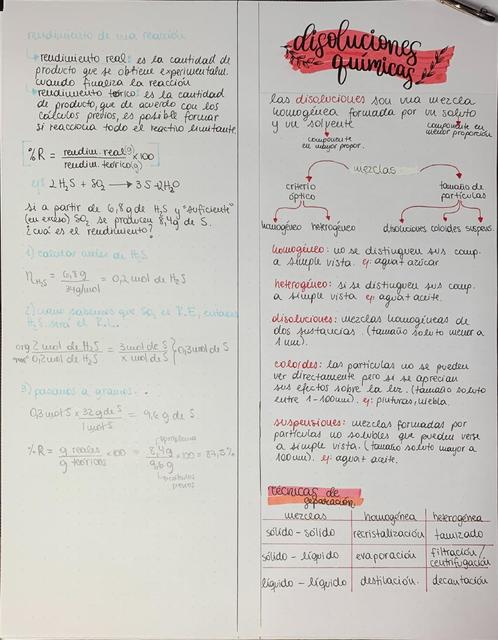 rendimiento de una reacción
rendimiento real: es la cantidad de
producto que se obtiene experimentalm.
cuando finaliza la reacción
rendimiento teórico: es la cantidad
de producto, que de acuerdo con los
cálculos previos, es posible formar
si reacciona todo el reactivo limitante
%R = rendim. real(g) / rendim. teórico(g) ×100
ej: 2H₂S + SO₂ → 3S+2H₂O
si a partir de 6,8g de H₂S y "suficiente"
(en exceso) SO₂ se producen 8,4g de S.
¿cuál es el rendimiento?
1) calcular moles de H₂S
n H₂S = 6,8g / 34g/mol = 0,2 mol de H₂S
2) como sabemos que SO₂ es R.E, entonces
H₂S será el R.L.
2 mol de H₂S / 0,2 mol de H₂S = 3 mol de S / x mol de S } 0,3 mol de S
3) pasamos a gramos.
0,3 mol S × 32g de S / 1 mol S = 9,6 g de S.
%R = g reales / g teóricos ×100 = 8,4g / 9,6g ×100 = 87,5%
previos
disoluciones
químicas
las disoluciones son una mezcla
homogénea formada por un soluto
y un solvente
componente en
menor proporción
componente
en mayor propor.
mezclas
criterio
óptico
tamaño de
partículas
homogéneo heterogéneo disoluciones coloides suspens.
homogéneo: no se distinguen sus comp.
a simple vista. ej: agua+azúcar
heterogéneo: si se distinguen sus comp.
a simple vista ej: agua+aceite.
disoluciones: mezclas homogéneas de
dos sustancias. (tamaño soluto menor a
1nm).
coloides: las partículas no se pueden
ver directamente pero si se aprecian
sus efectos sobre la luz. (tamaño soluto
entre 1-100nm). ej: pinturas, niebla.
suspensiones: mezclas formadas por
partículas no solubles que pueden verse
a simple vista. (tamaño soluto mayor a
100nm). ej: agua+aceite.
técnicas de
separación
mezclas homogénea heterogénea
sólido-sólido recristalización tamizado
sólido-líquido evaporación filtración/
centrifugación
líquido-líquido destilación. decantación